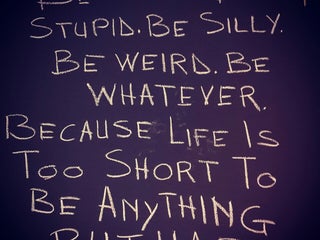 STUPID. BE SILLY.
BE WEIRD. BE
WHATEVER.
BECAUSE LIFE IS
TOO SHORT TO
BE ANYTHING